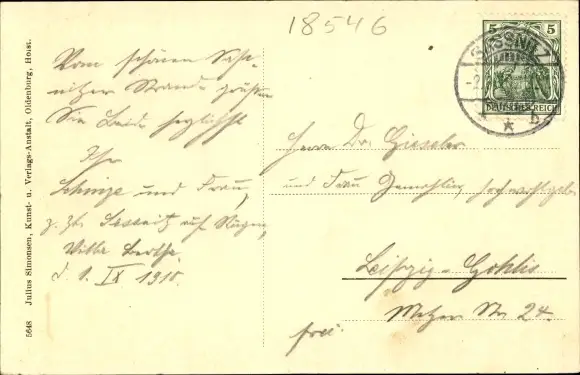 18546
5 5
DEUTSCHES REICH
SASSNITZ
b
Vom schönen Sass-
nitzer Strande grüßen
Sie Beide herzlichst
Ihr
Schinze und Frau,
z. Zt. Sassnitz auf Rügen,
Villa Bertha.
d. 1. IX 1910.
Herrn Dr. Gieseler
und Frau Gemahlin, hochwohlgeb.
Leipzig-Gohlis
Metzer Str. 24.
frei.
5648 Julius Simonsen, Kunst- u. Verlags-Anstalt, Oldenburg, Holst.